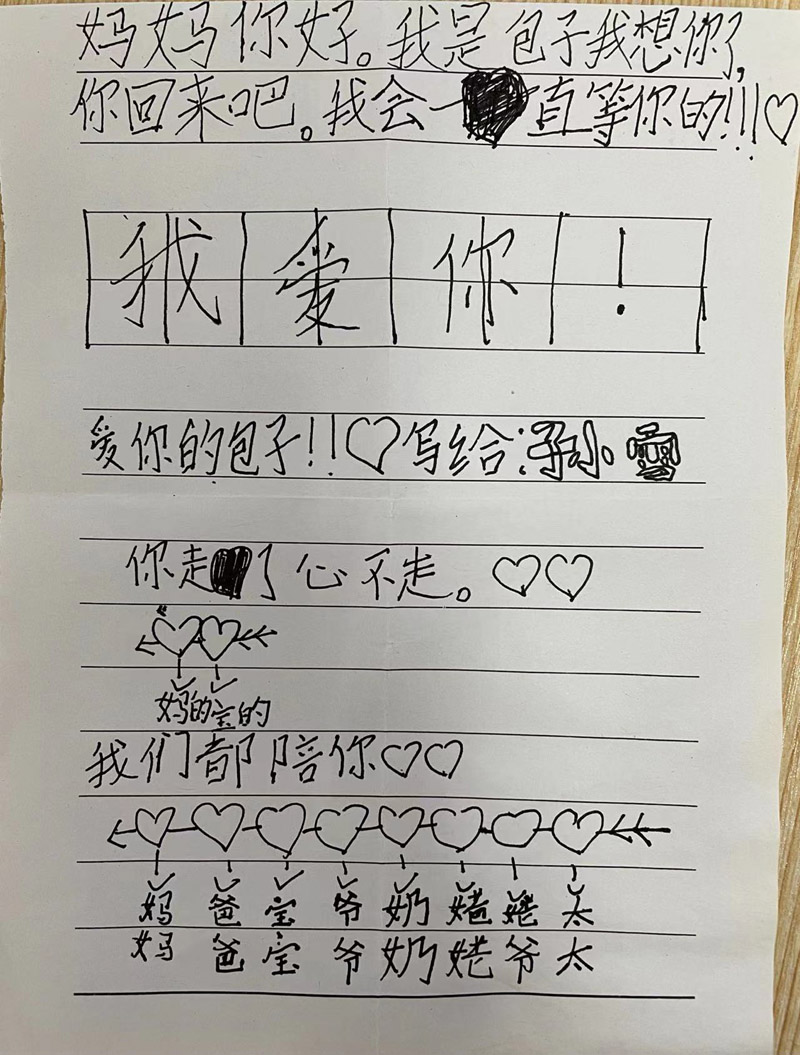 妈妈你好。我是包子我想你了,
你回来吧。我会一直等你的!!!♡
我爱你!
爱你的包子!!♡写给:孙小雪
你走了心不走。♡♡
妈的宝的
我们都陪你♡♡
妈 爸 宝 爷 奶 姥 姥 太
妈 爸 宝 爷 奶 姥 爷 太